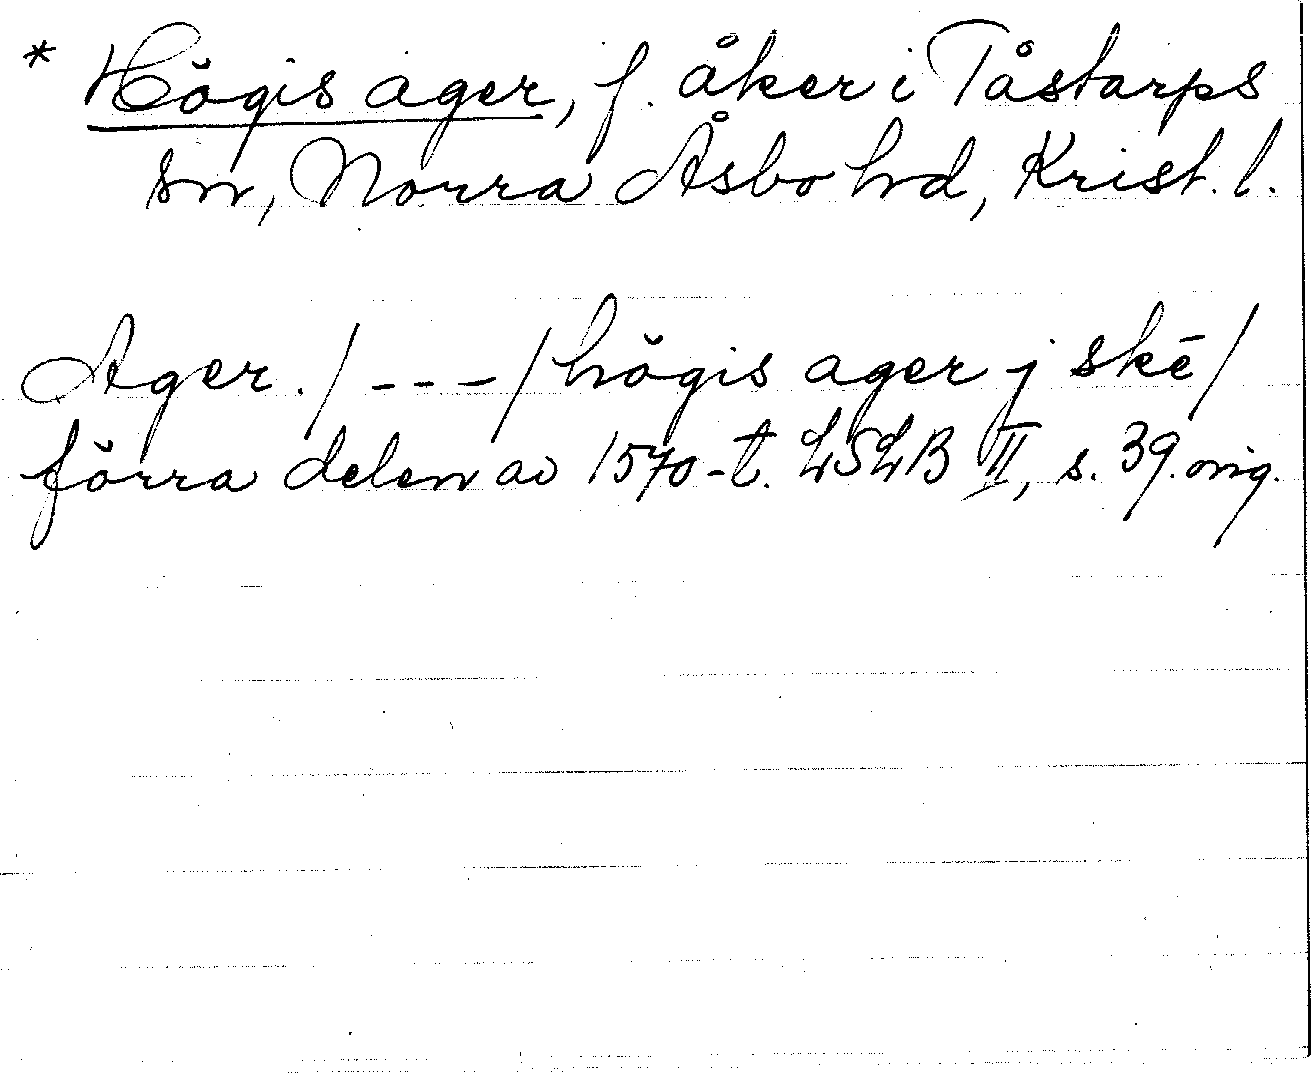 * Högis ager, f. åker i Tåstarps
sn, Norra Åsbo hd, Krist. l.
Ager. / - - - / högis ager j skē /
förra delen av 1570-t. LSLB II, s. 39. orig.